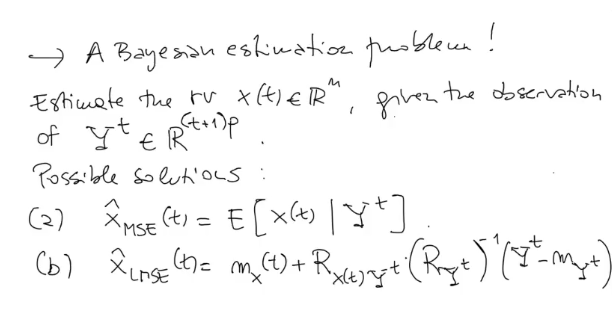 → A Bayesian estimation problem!
Estimate the rv x(t) ∈ ℝⁿ, given the observation
of Y^t ∈ ℝ^(t+1)p.
Possible solutions:
(a) x̂_MSE(t) = E[x(t) | Y^t]
(b) x̂_LMSE(t) = m_x(t) + R_x(t)Y^t · (R_Y^t)^-1 (Y^t - m_Y^t)